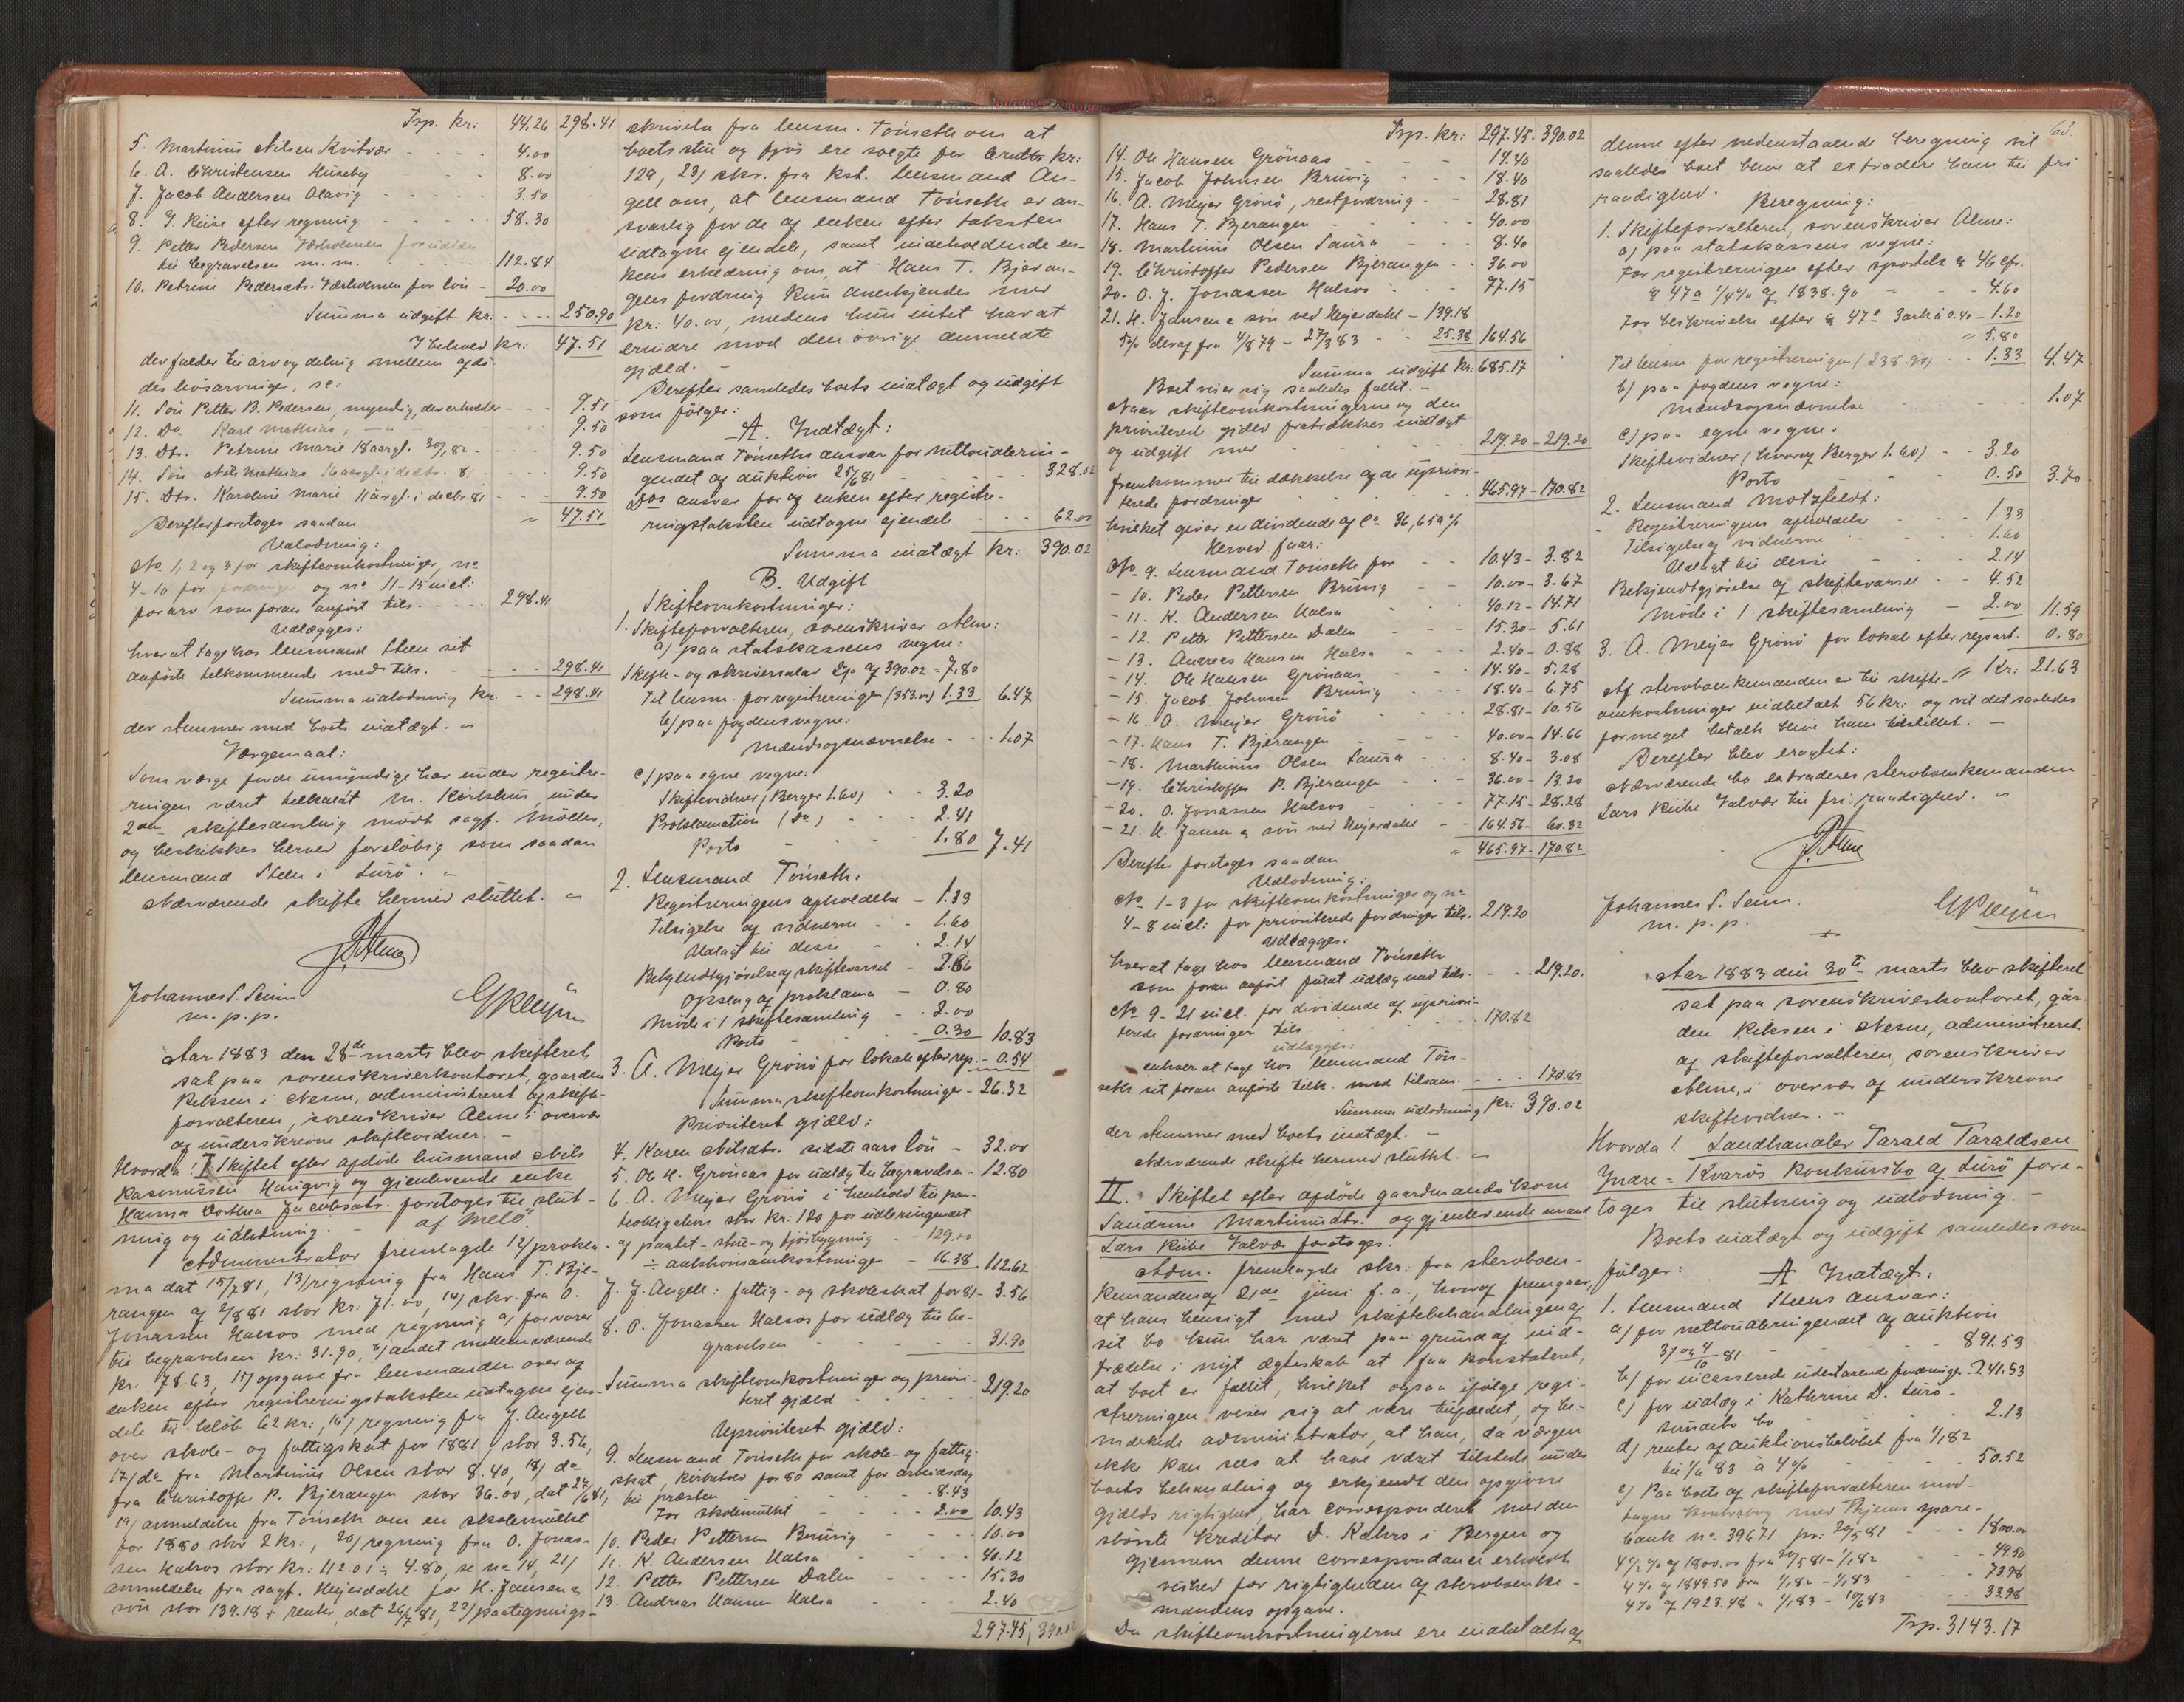 Trsp. kr: 44.26 298.41
5. Martinus Nilsen Kvitvær - - - 4.00
6. A. Christensen Huseby - - 8.00
7. Jacob Andersen Alavig - - - 3.50
8. J. Kiise efter regning - - - 58.30
9. Petter Pedersen Værholmen for
til begravelsen m.m. - - - 112.84
10. Petrine Pedersdtr. Værholmen for løn - 20.00
Summa udgift kr: - - 250.90
I behold kr: 47.51
der falder til arv og deling mellem afdø-
des livsarvinger, se:
11. Søn Petter B. Pedersen, myndig, der erholder - - 9.51
12. Do Karl Mathias, - - - 9.50
13. Dtr. Petrine Marie 18 aargl. 30/1 82 - - - 9.50
14. Søn Nils Mathias i decbr. 81 - - - 9.50
15. Dtr. Karoline Marie 11 årgl. i decbr. 81 - - - 9.50
Derefter foretoges saadan " 47.51
Udlodning:
No 1, 2 og 3 for skifteomkostninger, no
4-10 for fordringer og no 11-15 incl:
for arv som foran anført tils. - - - 298.41
Udlægges:
hver at tage hos lensmand Steen sit
anførte tilkommende med tils. - - - 298.41
Summa udlodning kr. - - 298.41
der stemmer med boets indtægt. "
Værgemaal:
Som værge for de umyndige har under registre-
ringen været tilkaldt M. Kirkhus, under
2den skiftesamling mødt sagf. Møller,
og beskikkes herved foreløbig som saadan
lensmand Steen i Lurø. "
Nærværende skifte hermed sluttet. "
Johannes S. Seines
m.p.p.
Aar 1883 den 28de marts blev skifteret
sat paa sorenskriverkontoret, gaarden
Reksen i Nesne, administreret af skifte-
forvalteren, sorenskriver Alme i overvær
af underskrevne skiftevidner. -
Hvorda! I Skiftet efter afdøde husmand Nils
Rasmussen Haugvig og gjenlevende enke
Hanna Dorthea Jacobsdtr. foretoges til slut-
ning og udlodning. - af Melø.
Administrator fremlagde 12/ prokla-
ma dat 15/7 81, 13/ regning fra Hans T. Bje-
rangen af 2/8 81 stor kr: 71.00, 14/ skr. fra O.
Jonassen Halsos med regning a/ for varer
til begravelsen kr: 31.90, b/ andet mellemværende
kr: 78.63, 15/ opgave fra lensmanden over af
enken efter registreringstaksten udtagne ejen-
dele til beløb 62 kr:, 16/ regning fra J. Angell
over skole- og fattigskat for 1881 stor 3.56,
17/ do fra Martinus Olsen stor 8.40, 18/ do
fra Christoffer P. Bjerangen stor 36.00, dat 27/6 81,
19/ anmeldelse fra Tønseth om en skolemulkt
for 1880 stor 2 kr:, 20/ regning fra O. Jonas-
sen Halsos stor kr: 112.01 ÷ 4.80, se no 14, 21/
anmeldelse fra sagf. Meyerdahl for H. Jansen &
søn stor 139.18 + renter, dat 26/7 81, 22/ paategnings-
skrivelse fra lensm. Tønseth om at
boets stue og fjøs ere solgte for brutto kr:
129, 23/ skr. fra kst. lensmand An-
gell om, at lensmand Tønseth er an-
svarlig for de af enken efter taksten
udtagne ejendele, samt indeholdende en-
kens erklæring om, at Hans T. Bjeran-
gens fordring kun anerkjendes med
kr: 40.00, medens hun intet har at
erindre mod den øvrige anmeldte
gjæld. -
Derefter samledes boets indtægt og udgift
som følger:
A. Indtægt:
Lensmand Tønseths ansvar for nettoudbrin-
gendet af auktion 25/7 81 - - - 328.02
Dos ansvar for af enken efter registre-
ringstaksten udtagne ejendele - - - 62.00
Summa indtægt kr: 390.02
B. Udgift
Skifteomkostninger:
1. Skifteforvalteren, sorenskriver Alme:
a/ paa statskassens vegne:
Skifte- og skriversalær 2% af 390.02 = 7.80
Til lensm. for registreringen (353.00) 1.33 6.47
b/ paa fogdens vegne:
Mændsopnævnelse - - - 1.07
c/ paa egne vegne:
Skiftevidner (Berger 1.60) - - 3.20
Proklamation (Do) - - - 2.41
Porto - - - 1.80 7.41
2. Lensmand Tønseth:
Registreringens afholdelse - 1.33
Tilsigelse af vidnerne - - 1.60
Udlagt til disse - - 2.14
Bekjendtgjørelse af skiftevarsel - 2.66
Opslag af proklama - 0.80
Møde i 1 skiftesamling - - 2.00
Porto - - - 0.30 10.83
3. A. Meyer Grønø for lokale efter rep. - 0.54
Summa skifteomkostninger - 26.32
Prioriteret gjæld:
4. Karen Nilsdtr. sidste aars løn - 32.00
5. Ole H. Grønaas for udlæg til begravelsen - 12.80
6. A. Meyer Grønø i henhold til pan-
teobligation stor kr: 120 for udbringendet
af pantet - stue- og fjøsbygning - - 129.00
÷ auktionsomkostninger - 16.38 112.62
7. J. Angell: fattig- og skoleskat for 81 - 3.56
8. O. Jonassen Halsos for udlæg til be-
gravelsen - - - 31.90
Summa skifteomkostninger og priori-
teret gjæld - - - 219.20
Uprioriteret gjæld:
9. Lensmand Tønseth for skole- og fattig-
skat, kirketold for 80 samt for arbeidsdag
til præsten - - - 8.43
for skolemulkt - - - 2.00 10.43
10. Peder Pettersen Brunvig - - - 10.00
11. K. Andersen Halsa - - - 40.12
12. Petter Pettersen Dalen - - - 15.30
13. Andreas Hansen Halsa - - - 2.40
297.45 390.02
Trsp. kr: 297.45 - 390.02
14. Ole Hansen Grønaas - - - 14.40
15. Jacob Johnsen Brunvig - - - 18.40
16. A. Meyer Grønø, restfordring - - 28.81
17. Hans T. Bjerangen - - - 40.00
18. Martinus Olsen Saura - - - 8.40
19. Christoffer Pedersen Bjerangen - - 36.00
20. O. J. Jonassen Halsos - - - 77.15
21. H. Jansen & søn ved Meyerdahl - 139.18
5% deraf fra 4/8 79 - 27/3 83 - - 25.38 164.56
Summa udgift kr: 685.17
Boet viser sig saaledes fallit. -
Naar skifteomkostningerne og den
prioriterede gjæld fratrækkes indtægt
og udgift med - - - 219.20 - 219.20
fremkommer til dækkelse af de upriori-
terede fordringer - - - 465.97 - 170.82
hvilket giver en dividende af ca 36,659 %
Herved faar:
No 9. Lensmand Tønseth for - - 10.43 - 3.82
- 10. Peder Pettersen Brunvig - - 10.00 - 3.67
- 11. K. Andersen Halsa - - 40.12 - 14.71
- 12. Petter Pettersen Dalen - - 15.30 - 5.61
- 13. Andreas Hansen Halsa - - 2.40 - 0.88
- 14. Ole Hansen Grønaas - - 14.40 - 5.28
- 15. Jacob Johnsen Brunvig - - 18.40 - 6.75
- 16. A. Meyer Grønø - - 28.81 - 10.56
- 17. Hans T. Bjerangen - - 40.00 - 14.66
- 18. Martinus Olsen Saura - - 8.40 - 3.08
- 19. Christoffer P. Bjerangen - - 36.00 - 13.20
- 20. O. Jonassen Halsos - - 77.15 - 28.28
- 21. H. Jansen & søn ved Meyerdahl - - 164.56 - 60.32
Derefter foretoges saadan " 465.97 - 170.82
Udlodning:
No 1-3 for skifteomkostninger og no
4-8 incl: for prioriterede fordringer tils. 219.20
Udlægges:
hver at tage hos lensmand Tønseth
som foran anført fuldt udlæg med tils. - - - 219.20.
No 9-21 incl. for dividende af upriori-
terede fordringer tils. - - - 170.82
udlægges:
enhver at tage hos lensmand Tøn-
seth sit foran anførte tilk. med tilsam. - - - 170.82
Summa udlodning kr: 390.02
der stemmer med boets indtægt. -
Nærværende skifte hermed sluttet. "
II. Skiftet efter afdøde gaardmandskone
Sandrine Martinusdtr. og gjenlevende mand
Lars Kiihe Valvær foretoges.
Adm. fremlagde skr. fra sterboen-
kemanden af 21de juni f. a., hvoraf fremgaar,
at hans hensigt med skiftebehandlingen af
sit bo kun har været paa grund af ind-
trædelse i nyt ægteskab at faa konstateret,
at boet er fallit, hvilket ogsaa ifølge regi-
streringen viser sig at være tilfældet, og be-
mærkede administrator, at han, da værgen
ikke kan sees at have været tilstede under
boets behandling og erkjendt den opgivne
gjælds rigtighed, har correspondert med den
største kreditor D. Kahrs i Bergen og
gjennem denne correspondance erholdt
vished for rigtigheden af sterboenke-
mandens opgave.
Da skifteomkostningerne ere indbetalt af
63.
denne efter nedenstaaende beregning vil
saaledes boet blive at extradere ham til fri
raadighed. -
Beregning:
1. Skifteforvalteren, sorenskriver Alme:
a/ paa statskassens vegne:
For registreringen efter sportell. § 46 cfr.
§ 47a 1/4 % af 1838.90 - - 4.60
For beskrivelse efter § 47c 3 ark à 0.40 - 1.20
" 5.80
Til lensm. for registreringen (238.90) - - 1.33 4.47
b/ paa fogdens vegne:
Mændsopnævnelse - - - 1.07
c/ paa egne vegne.
Skiftevidner (hvoraf Berger 1.60) - - 3.20
Porto - - - 0.50 3.70
2. Lensmand Motzfeldt:
Registreringens afholdelse - - - 1.33
Tilsigelse af vidnerne - - - 1.60
Udlagt til disse - - - 2.14
Bekjendtgjørelse af skiftevarsel - - 4.52
Møde i 1 skiftesamling - - 2.00 11.59
3. A. Meyer Grønø for lokale efter repart. 0.80
" Kr: 21.63
Af sterboenkemanden er til skifte-
omkostninger indbetalt 56 kr: og vil det saaledes
formeget betalte blive ham tilstillet. -
Derefter blev eragtet:
Nærværende bo extraderes sterboenkemanden
Lars Kiihe Valvær til fri raadighed. "
Johannes S. Seines.
m.p.p.
Aar 1883 den 30te marts blev skifteret
sat paa sorenskriverkontoret, går-
den Reksen i Nesne, administreret
af skifteforvalteren, sorenskriver
Alme, i overvær af underskrevne
skiftevidner. -
Hvorda! Landhandler Tarald Taraldsen
Indre-Kvarøs konkursbo af Lurø fore-
toges til slutning og udlodning. -
Boets indtægt og udgift samledes som
følger: A. Indtægt:
1. Lensmand Steens ansvar:
a/ for nettoudbringendet af auktion
3/ og 4/10 81 - - - 891.53
b/ for incasserede udestaaende fordringer - 241.53
c/ for udlæg i Kathrine D. Lurø-
sundets bo - - - 2.13
d/ renter af auktionsbeløbet fra 1/1 82
til 1/6 83 à 4 % - - - 50.52
e/ Paa boets af skifteforvalteren mod-
tagne kontrabog med Thjems spare-
bank no 39671 pr: 20/5 81 - - - 1800.00
4 1/2 % af 1800.00 fra 20/5 81 - 1/1 82 - - 49.50
4 % af 1849.50 fra 1/1 82 - 1/1 83 - - 73.98
4 % af 1923.48 " 1/1 83 - 10/6 83 - - 33.98
Trsp. 3143.17